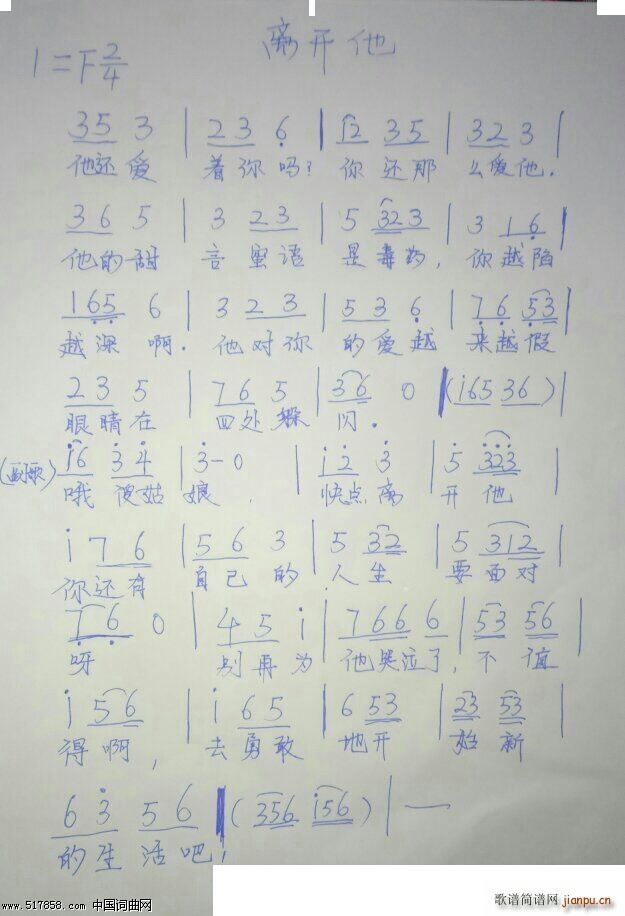 离开他
1=F 2/4
35 3 | 2 3 6 | i2 35 | 32 3 |
他还爱 着你吗? 你还那 么爱他.
36 5 | 3 23 | 5 323 | 3 16 |
他的甜 言蜜语 是毒药, 你越陷
165 6 | 3 23 | 5 3 6 | 76 53 |
越深啊. 他对你 的爱越 来越假
23 5 | 76 5 | 36 0 | (i65 36) |
眼睛在 四处躲 闪.
(副歌) i6 34 | 3-0 | i2 3 | 5 323 |
哦傻姑 娘, 快点离 开他
i 76 | 56 3 | 5 32 | 5 312 |
你还有 自己的 人生 要面对
76 0 | 45 i | 766 6 | 53 56 |
呀 别再为 他哭泣了, 不值
i 56 | i 65 | 6 53 | 23 53 |
得啊, 去勇敢 地开 始新
63 56 | (356 i56) | —
的生活吧,
www.517858.com 中国词曲网
歌谱简谱网 jianpu.cn